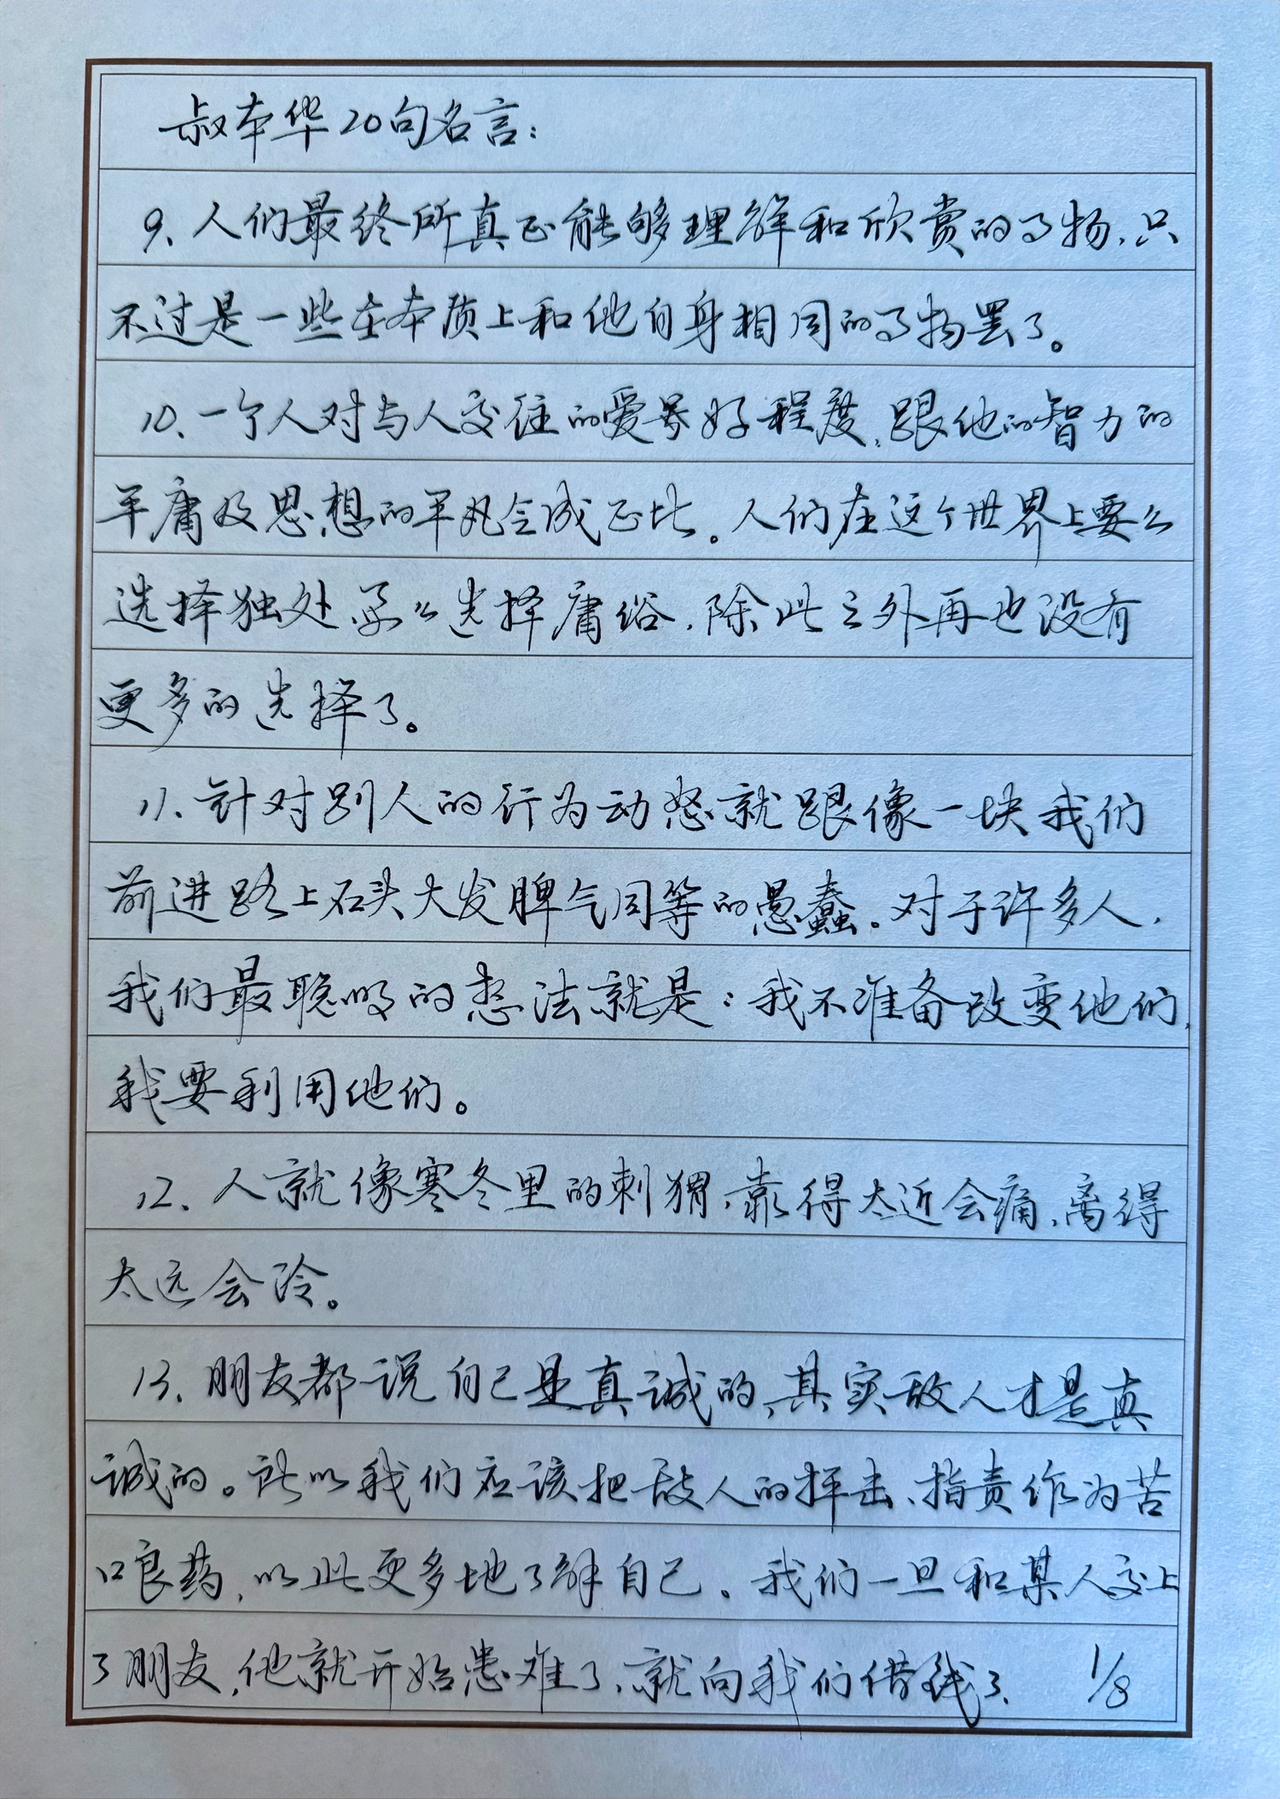 叔本华20句名言：
9、人们最终所真正能够理解和欣赏的事物，只
不过是一些在本质上和他自身相同的事物罢了。
10、一个人对与人交往的爱号好程度，跟他的智力的
平庸及思想的平凡会成正比。人们在这个世界上要么
选择独处，要么选择庸俗，除此之外再也没有
更多的选择了。
11、针对别人的行为动怒就跟像一块我们
前进路上石头大发脾气同等的愚蠢。对于许多人，
我们最聪明的想法就是：我不准备改变他们，
我要利用他们。
12、人就像寒冬里的刺猬，靠得太近会痛，离得
太远会冷。
13、朋友都说自己是真诚的，其实敌人才是真
诚的。所以我们应该把敌人的抨击、指责作为苦
口良药，以此更多地了解自己。我们一旦和某人交上
了朋友，他就开始患难了，就向我们借钱了、 1/8